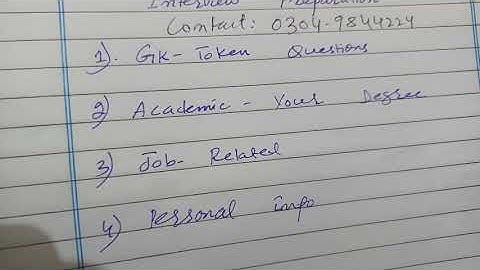 Interview Preparation
Contact: 0304-9844224
1). GK-Token Questions
2) Academic - Your Degree
3) Job- Related
4) Personal info